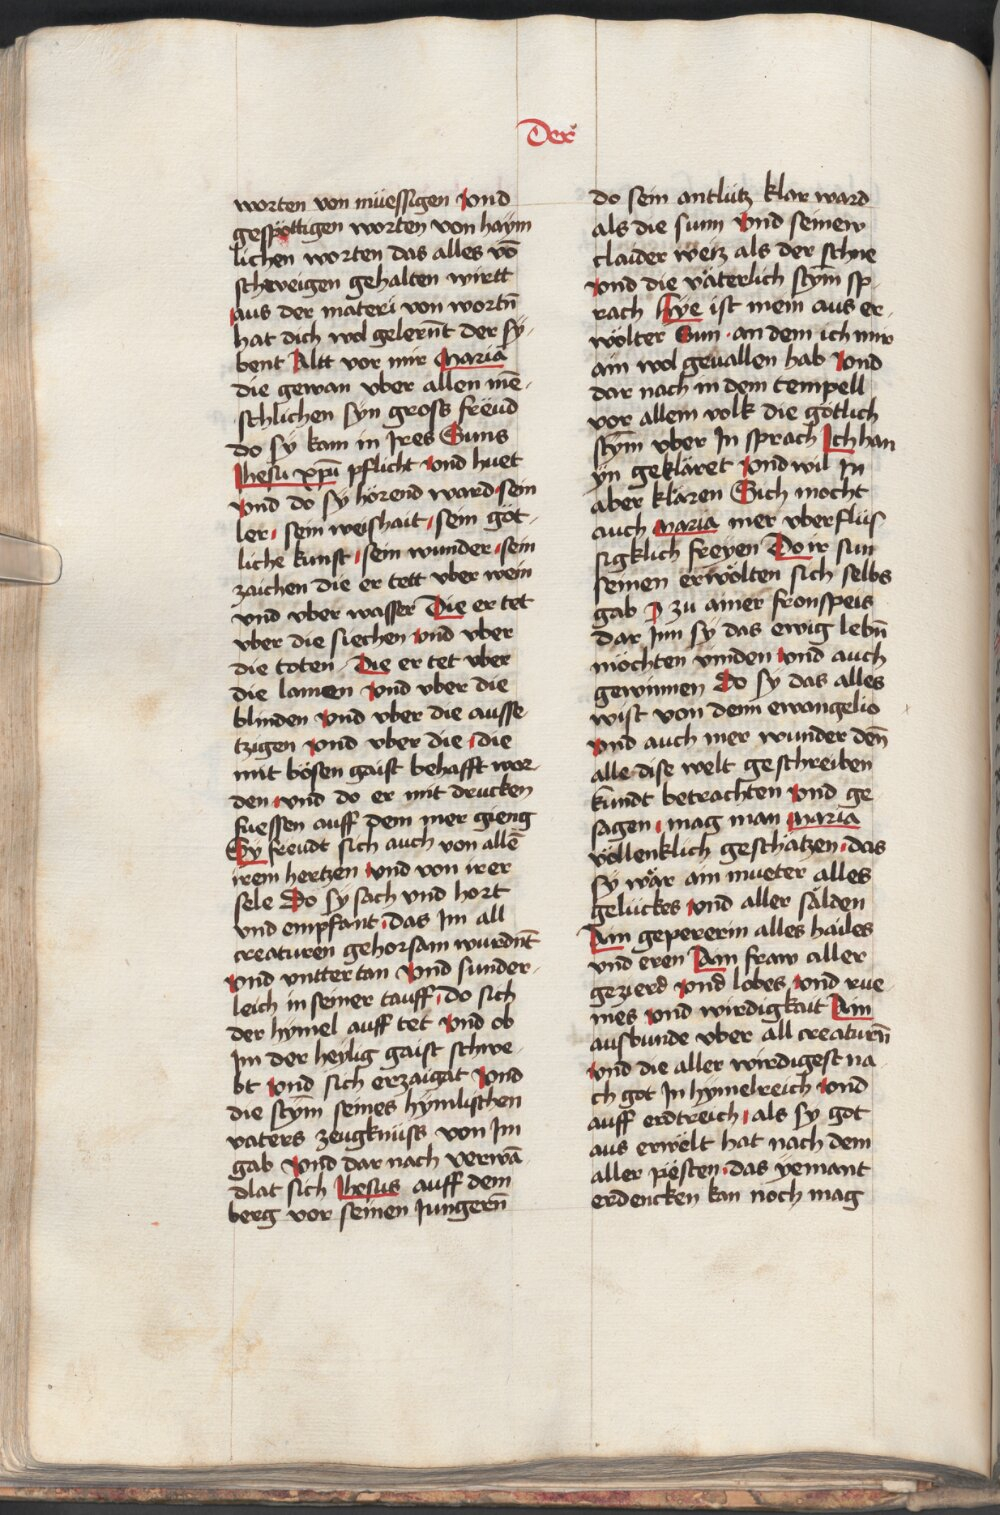 Der
worten von müessigen vnd
gespöttigen worten von haym
lichen worten das alles vō
schweigen gehalten wirtt
aus der materi von wortn̄
hat dich wol gelernt der sy-
bent Altt vor mir Maria
die gewan vber allen mē-
schlichen syn gross frëud
do sy kam in Jres Suns
Jhesu xp̄ū pflicht vnd huet
vnd do sy hörend ward sein
ler sein weishait sein göt-
liche kunst sein wunder sein
zaichen die er tett vber wein
vnd vber wasser Die er tet
vber die siechen vnd vber
die toten Die er tet vber
die lamen vnd vber die
blinden vnd vber die ausse-
tzigen vnd vber die die
mit bösen gaist behafft wor-
den vnd do er mit drucken
fuessen auff dem mer gieng
Sy freudt sich auch von allē
irem hertzen vnd von irer
sele Do sy sach vnd hort
vnd empfant das Jm all
creaturen gehorsam wurdnt
vnd vntter tan vnd sunder-
leich in seiner tauff do sich
der hymel auff tet vnd ob
Jm der heylig gaist schwe-
bt vnd sich erzaigat vnd
die stym̄ seines hymlischen
vaters zeugknüss von Jm
gab vnd dar nach verwā-
dlat sich Jhesus auff dem
berg vor seinen Jungern̄
do sein antlütz klar ward
als die sunn vnd seinew
claider weiz als der schne
vnd die väterlich stym̄ sp-
rach Hye ist mein aus er-
wölter Sun an dem ich mir
ain wol geuallen hab vnd
dar nach in dem tempell
vor allem volk die götlich
stym̄ vber Jn sprach Jch han
yn gekläret vnd wil Jn
aber klären Sich mocht
auch Maria mer vberflüs-
sigklich freyen Do ir sun
seinen erwölten sich selbs
gab zu ainer fronspeis
dar Jnn sy das ewig lebn̄
möchten vinden vnd auch
gewinnen Do sy das alles
wist von dem ewangelio
vnd auch mer wunder den̄
alle dise welt geschreiben
kundt betrachten vnd ge
sagen mag man Maria
völlenklich geschätzen das
sy wär ain mueter alles
gelückes vnd aller sälden
Ain gepererin alles hailes
vnd eren Ain fraw aller
gezierd vnd lobes vnd rue-
mes vnd wirdigkait Ain
ausbunde vber all creaturn̄
vnd die aller wirdigest na
ch got Jn hymelreich vnd
auff erdtreich als sy got
aus erwelt hat nach dem
aller pesten das yemant
erdencken kan noch mag